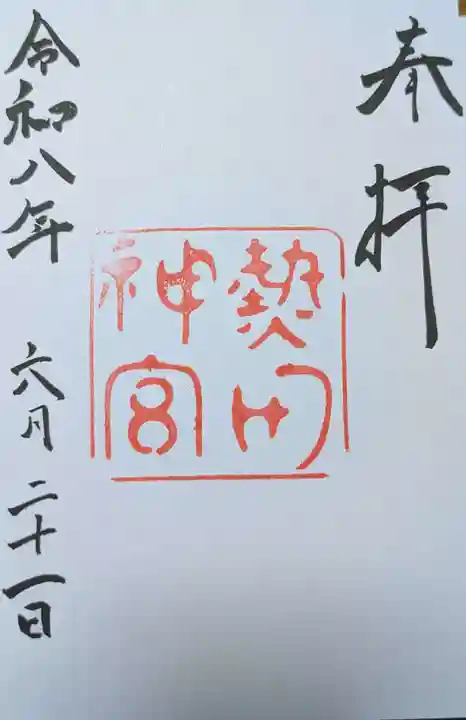 奉拝
熱田
神宮
令和八年 六月二十一日